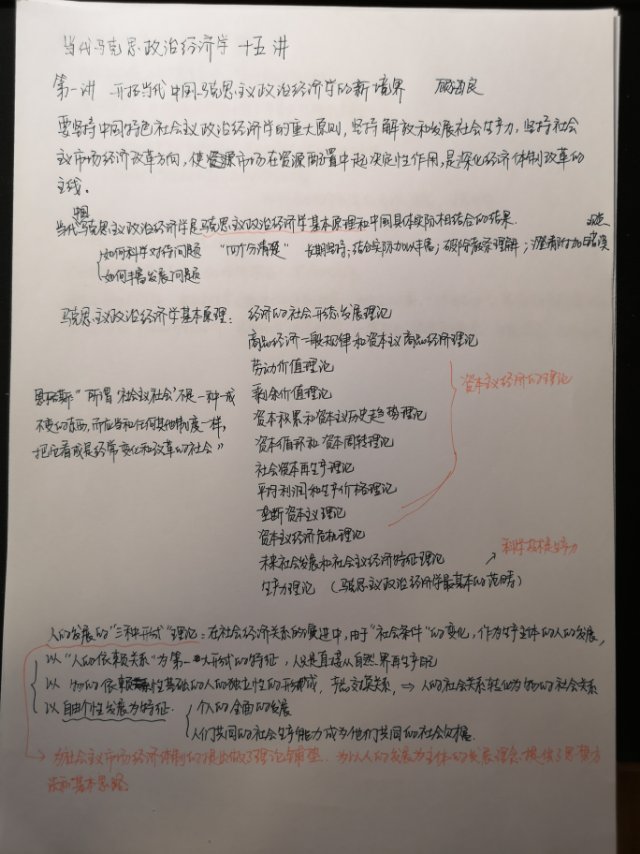 当代马克思政治经济学 十五讲
第一讲 开拓当代中国马克思主义政治经济学的新境界 顾海良
要坚持中国特色社会主义政治经济学的重大原则，坚持解放和发展社会生产力，坚持社会
主义市场经济改革方向，使资源市场在资源配置中起决定性作用，是深化经济体制改革的
主线。
中国
当代马克思主义政治经济学是马克思主义政治经济学基本原理和中国具体实际相结合的结果.
如何科学对待问题 "四个分清楚" 长期坚持；结合实际加以丰富；破除教条理解；澄清附加错误
观点
如何丰富发展问题
马克思主义政治经济学基本原理： 经济的社会形态发展理论
商品经济一般规律和资本主义商品经济理论
劳动价值理论
剩余价值理论
资本主义经济的理论
恩格斯："所谓'社会主义社会'不是一种一成
不变的东西，而应当和任何其他制度一样，
把它看成是经常变化和改革的社会》
资本积累和资本主义历史趋势理论
资本循环和资本周转理论
社会资本再生产理论
平均利润和生产价格理论
垄断资本主义理论
资本主义经济危机理论
未来社会发展和社会主义经济特征理论
科学技术是生产力
生产力理论 （马克思主义政治经济学最基本的范畴）
人的发展的"三种形式"理论：在社会经济关系的演进中，由于"社会条件"的变化，作为生产主体的人的发展，
以"人的依赖关系"为第一大形式的特征，人只是直接从自然界再生产自己
以 物的依赖性基础的人的独立性的形成， 交换关系，⇒ 人的社会关系转化为物的社会关系
以 自由个性发展为特征. 个人的全面的发展
人们共同的社会生产能力成为他们共同的社会财富
→ 为社会主义市场经济体制的提出做了理论铺垫. 为以人的发展为主体的发展理念提供了思想方
法和基本思路.